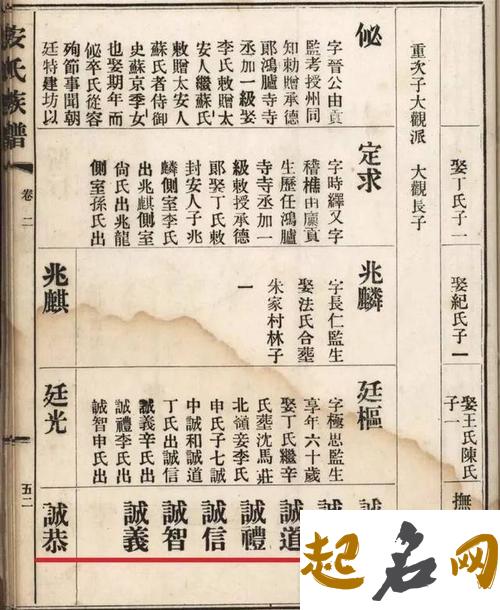 娶丁氏子二
娶紀氏子一
娶王氏陳氏子一
撫
重次子大觀派 大觀長子
佖
字晉公由貢
監考授州同
知勅贈承德
郎鴻臚寺寺
丞加一級娶
李氏敕贈太
安人繼蘇氏
敕贈太安人
蘇氏者侍御
史蘇京季女
也娶期年而
佖卒氏從容
殉節事聞朝
廷特建坊以
定求
字時繹又字
稽樵由廩貢
生歷任鴻臚
寺寺丞加一
級敕授承德
郎娶丁氏敕
封安人子兆
麟側室李氏
出兆麒側室
尙氏出兆龍
側室孫氏出
兆麟
字長仁監生
娶法氏合葬
朱家村林子
一
兆麒
廷樞
字極思監生
享年六十歲
娶丁氏繼辛
氏葬沈馬莊
北嶺妾李氏
申氏子七誠
中誠和誠道
丁氏出誠信
誠義辛氏出
誠禮李氏出
誠智申氏出
廷光
誠
誠
誠道
誠禮
誠信
誠智
誠義
誠恭
安氏族譜
卷二
五二
起名网